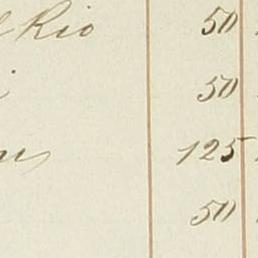 Rio 50
50
125
50